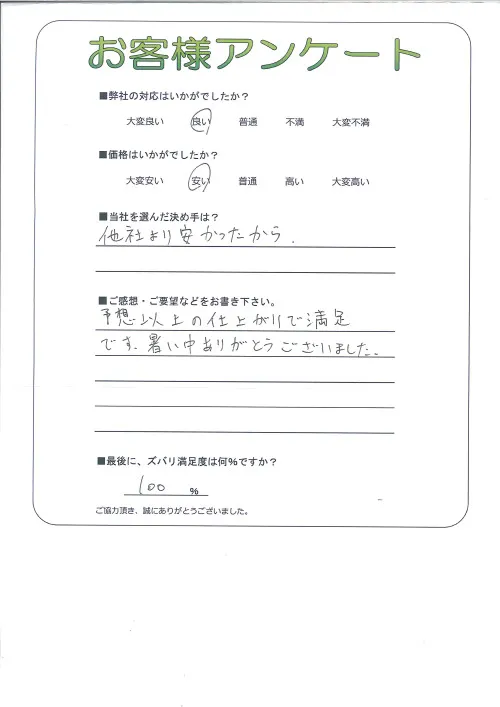 お客様アンケート
■弊社の対応はいかがでしたか？
大変良い 良い 普通 不満 大変不満
■価格はいかがでしたか？
大変安い 安い 普通 高い 大変高い
■当社を選んだ決め手は？
他社より安かったから.
■ご感想・ご要望などをお書き下さい。
予想以上の仕上がりで満足
です.暑い中ありがとうございました.
■最後に、ズバリ満足度は何%ですか？
100 %
ご協力頂き、誠にありがとうございました。